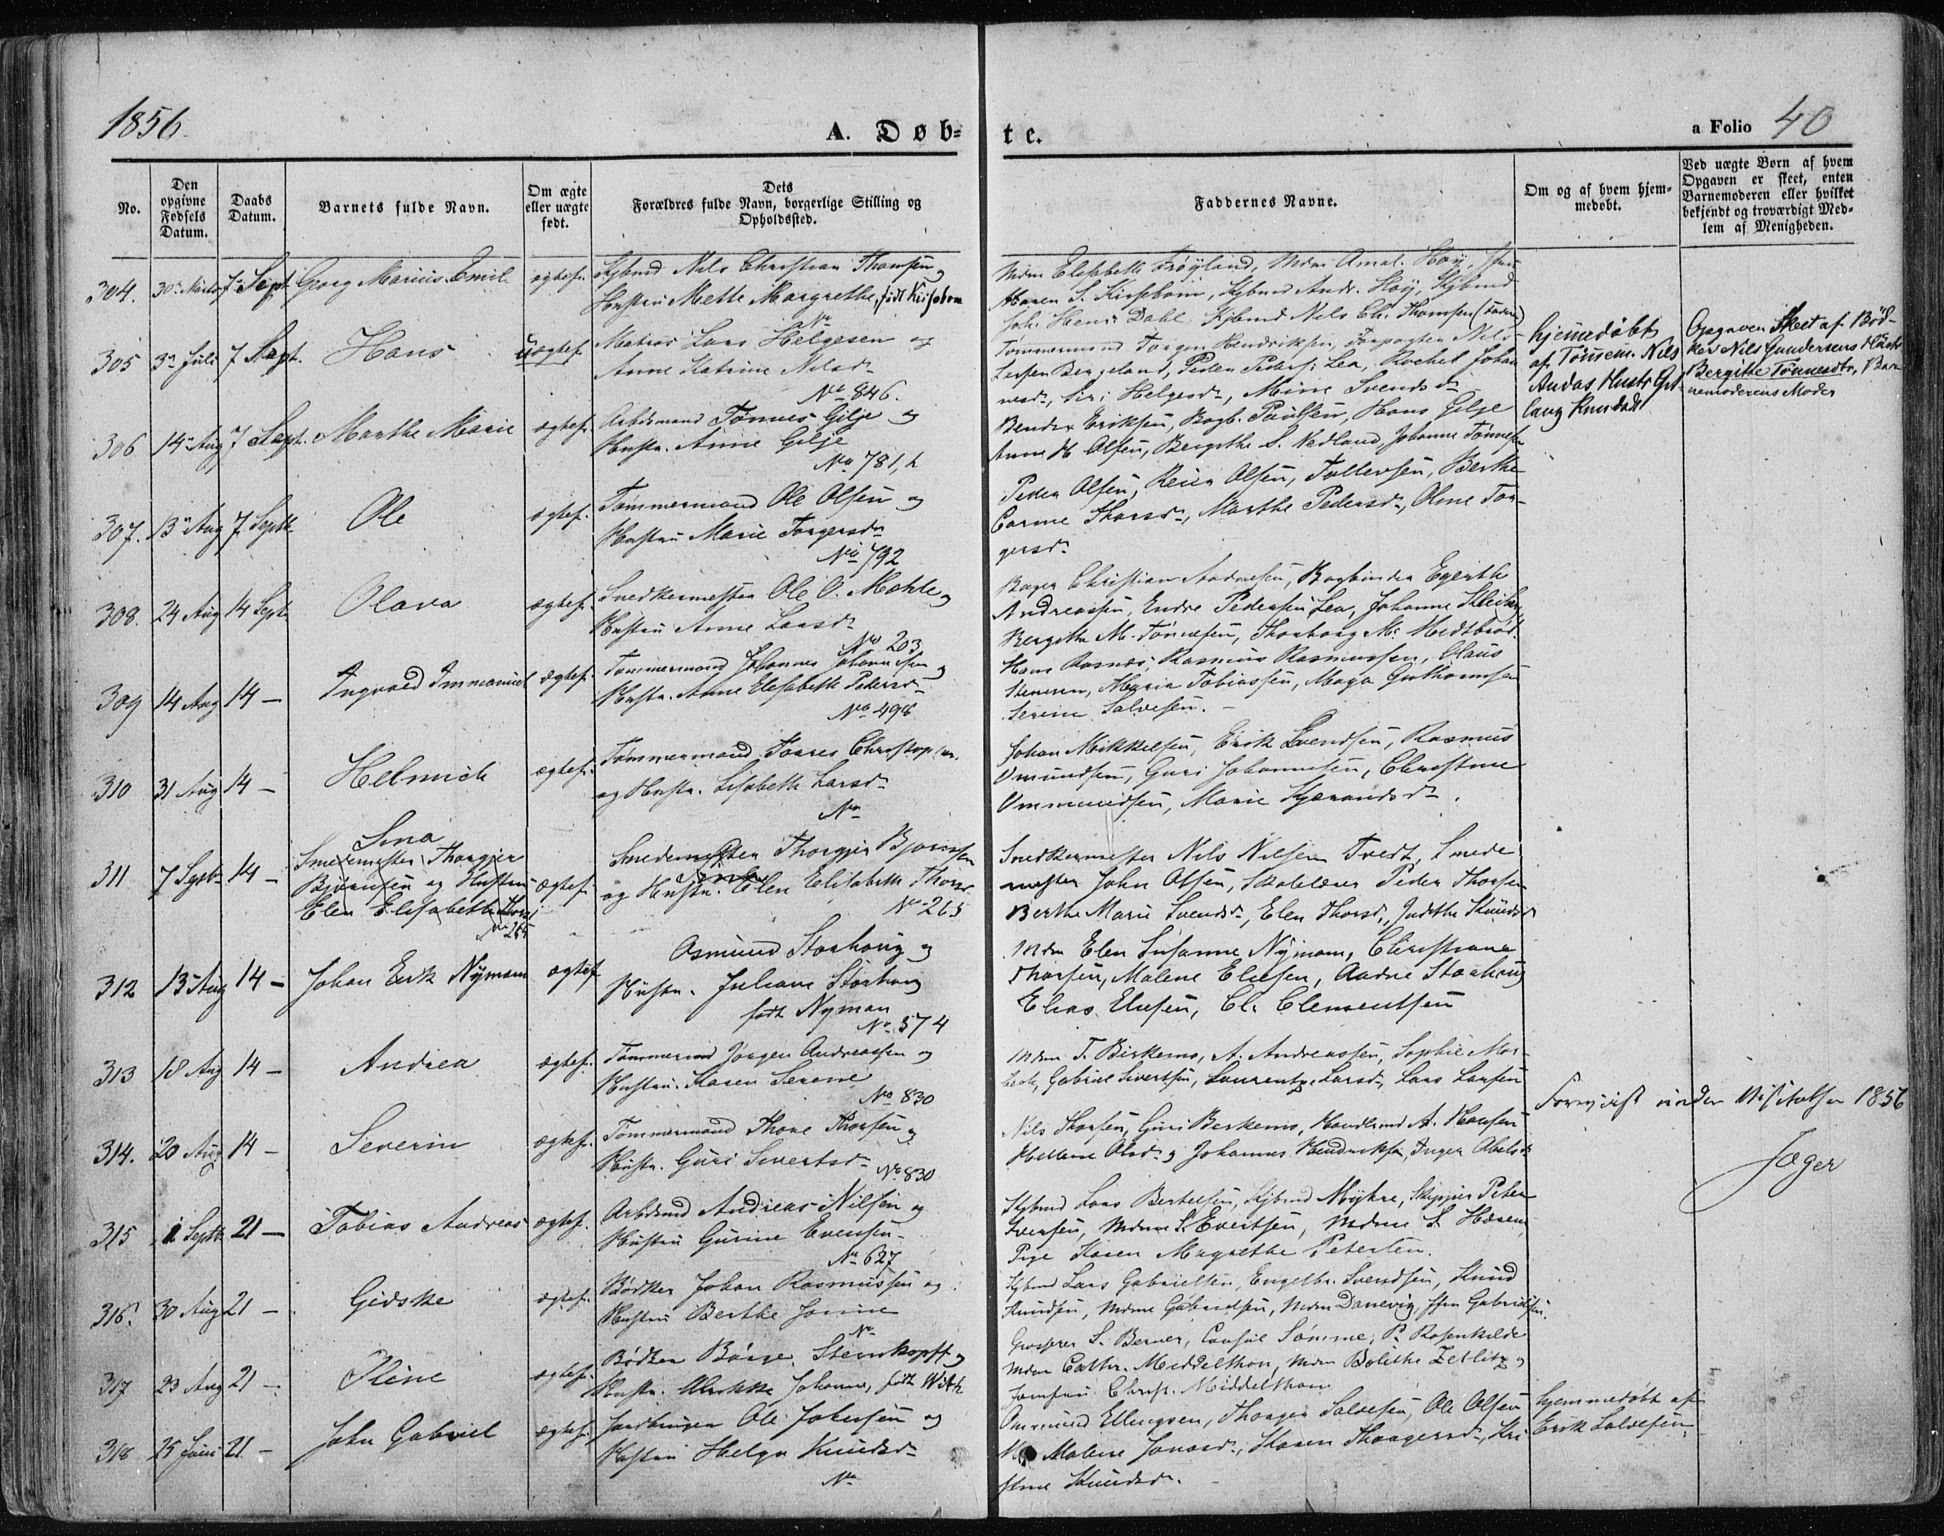 1856.
A. Døb-
te.
a Folio 40
No.
Den opgivne Fødsels Datum.
Daabs Datum.
Barnets fulde Navn.
Om ægte eller uægte født.
Dets Forældres fulde Navn, borgerlige Stilling og Opholdssted.
Faddernes Navne.
Om og af hvem hjem-
medøbt.
Ved uægte Børn af hvem
Opgaven er skeet, enten
Barnemoderen eller hvilket
bekjendt og troværdigt Med-
lem af Menigheden.
304. 30 Marts 7 Sept. Georg Marius Emil ægtef.
Nils Christian Thomsen og
Hustru Mette Margrethe, født Kirsebom
Mdm Elisabeth Frøyland, Mdm Amal. Høy,
Maren S. Kirsebom, Andr. Høy,
Joh. Henr. Dahl, Nils Chr. Thomsen
305 3 Juli 7 Sept. Hans uægtef.
Matros Lars Helgesen og
Anne Katrine Nilsd.
No 846.
Tømmermand Torger Hendriksen, Nils
Bergeland, Peder Peders. Lea, Rachel Johan
nesd., Siri Helgesd., Mine Svendsd.
hjemmedøbt
af Nils
Andas Hustr Gut
laug Knudsd.
Opgaven Skeet af Bød-
ker Nils Gundersens Hust
Bergithe Tønnesdtr, Bar
nemoderens Moder
306 14 Aug 7 Sept. Marthe Marie ægtef.
Arbdsmand Tønnes Gilje og
Hustr. Anne Gilje
No 781,h
Bender Eriksen, Bagb. Paulsen, Hans Gilje
Anne H Olsen, Bergithe S. Vedland, Johanne Tønnes
307. 13 Aug 7 Septb. Ole ægtef.
Tømmermand Ole Olsen og
Hustru Marie Torgersd.
No 792
Peder Olsen, Reier Olsen, Tollevsen, Berthe
Thorsd., Marthe Pedersd., Oline Tor
gersd.
308. 24 Aug 14 Sept Olava ægtef.
Snedkermester Ole O. Mæhle og
Hustru Anne Larsd.
No 203
Bager Christian Andresen, Bogbinder Egerthe
Andreassen, Endre Pedersen Lea, Johanne
Bergithe M. Tønnesen, Thorborg M. Midtbrød
309 14 Aug 14 — Ingvald Immanuel ægtef.
Tømmermand Johannes Johannesen og
Hustr. Anne Elisabeth Pedersd.
No 498
Hans Rasmus. Rasmus Rasmussen, Claus
Stenersen, Maria Tobiassen, Maya Guthormsen
Serine Salvesen. —
310 31 Aug 14 — Helmich ægtef.
Tømmermand Torres Christophersen.
og Hustr. Lisabeth Larsd.
No
Johan Mikkelsen, Erik Svendsen, Rasmus
Omundsen, Guri Johannesen, Christine
Ommundsen, Marie Kjærandsd.
311 7 Septb 14 — Sina
Smedemester Thorgjer
Bjørnsen og Hustru
Elen Elisabeth Thors
No 265
ægtef.
Smedemester Thorgjer Bjørnsen
Sina
og Hustr. Elen Elisabeth Thorsd
No 265
Snedkermester Nils Nilsen Tvedt, Smede
mester John Olsen, Skolelærer Peder Thorsen
Berthe Marie Svendsd., Elen Thorsd., Judithe Knudsd
312 13 Aug 14 — Johan Erik Nyman ægtef
Asmund Storhoug og
Hustr. Juliane Storhoug
født Nyman
No 574
Mdm Elen Susanne Nyman, Christiane
Thorsen, Malene Eliesen, Andrie Storhoug
Elias Eliesen, Cl. Clementsen
313 18 Aug 14 — Andrea ægtef.
Tømmermd Jørgen Andreassen og
Hustru. Karen Serine
No 830
Mdm T. Birkemo, A. Andreassen, Sophie Mar-
Gabriel Sivertsen, Laurentze Larsd, Lars Larsen
Forevist under Visitatsen 1856
Jæger
314. 20 Aug 14 — Severin ægtef.
Tømmermand Thore Thorsen og
Hustr. Guri Sivertsd.
No 830
Nils Thorsen, Guri Berkemo, Handlsmd A. Hansen
Hellene Olsd. og Johannes Hendriksen, Inger Abelsd
315 1 Septb 21 — Tobias Andreas ægtef.
Arbdsmd Andreas Nilsen og
Hustru Gurine Evensen
No 627
Lars Bertelsen, Myhre, Skipper Peter
Iversen, Mdm S. Evertsen, Mdm S. Hansen
Pige Karen Magrethe Petersen.
316. 30 Aug 21 — Gidske ægtef.
Bødker Johan Rasmussen og
Hustru Berthe Jonine
No
Lars Gabrielsen, Engelbr. Svendsen, Knud
Knudsen, Mdme Gabrielsen, Mdm Danevig, Jfru Gabrielsen
317 23 Aug 21 — Oline ægtef.
Bødker Børge Steenkopff og
Hustr. Ulrikke Johanne, født With
Grosserer S. Berner, Consul Sømme, P. Rosenkilde
Mdm Cathr. Middelthon, Mdm Bolithe Zetlitz og
Jomfru Christ. Middelthon
318 25 Juni 21 — John Gabriel ægtef.
Ole Johnsen og
Hustru Helga Knudsd.
No
Ommund Ellingsen, Thorger Salvesen, Ole Olsen
Malene Jonasd., Karen Thorgersd., Kri
stine Knudsd.
hjemmedøbt af
Erik Salvesen